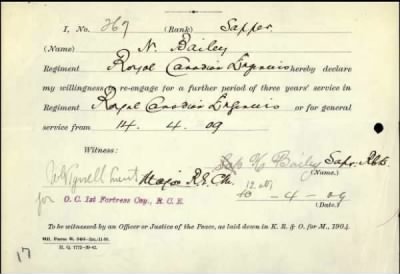 I, No. 369 (Rank) Sapper
(Name) N. Bailey
Regiment Royal Canadian Engineers hereby declare
my willingness to re-engage for a further period of three years' service in
Regiment Royal Canadian Engineers or for general
service from 14. 4. 09
Witness:
Sap N Bailey Sapr. R.C.E.
(Name)
Major R.E.
for O. C. 1st Fortress Coy., R. C. E.
- 4 - 09
(Date.)
To be witnessed by an Officer or Justice of the Peace, as laid down in K. R. & O. for M., 1904.
H. Q. 1772-39-42.
17